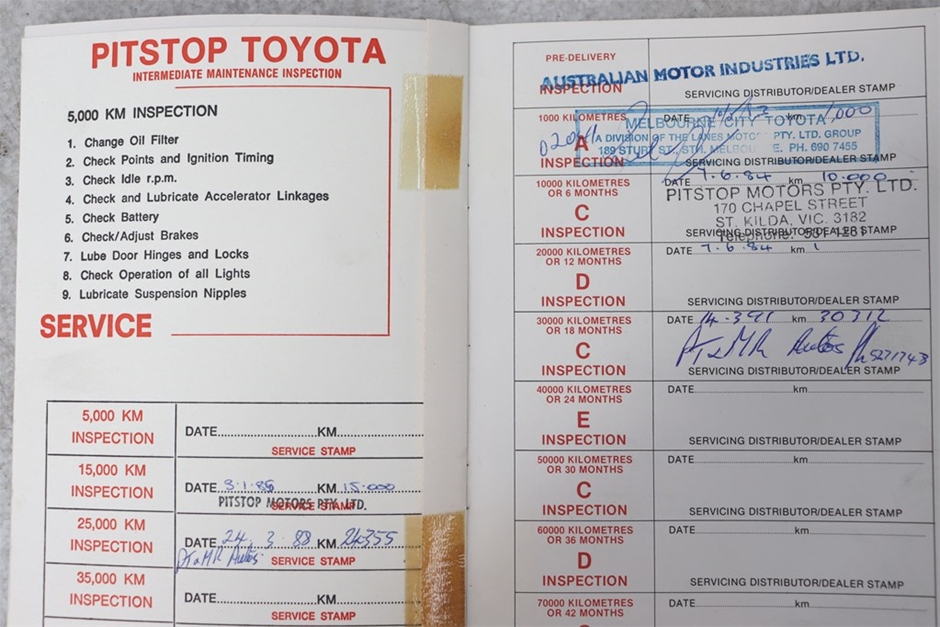 PITSTOP TOYOTA
INTERMEDIATE MAINTENANCE INSPECTION
5,000 KM INSPECTION
1. Change Oil Filter
2. Check Points and Ignition Timing
3. Check Idle r.p.m.
4. Check and Lubricate Accelerator Linkages
5. Check Battery
6. Check/Adjust Brakes
7. Lube Door Hinges and Locks
8. Check Operation of all Lights
9. Lubricate Suspension Nipples
SERVICE
5,000 KM
INSPECTION
DATE KM
SERVICE STAMP
15,000 KM
INSPECTION
DATE 3.1.86 KM 15.000
PITSTOP MOTORS PTY. LTD.
SERVICE STAMP
25,000 KM
INSPECTION
DATE 24.3.88 KM 24355
PT & MR Autos
SERVICE STAMP
35,000 KM
INSPECTION
DATE KM
SERVICE STAMP
PRE-DELIVERY
INSPECTION
AUSTRALIAN MOTOR INDUSTRIES LTD.
SERVICING DISTRIBUTOR/DEALER STAMP
1000 KILOMETRES
A
INSPECTION
DATE km 1,000
MELBOURNE CITY TOYOTA
A DIVISION OF THE LANES MOTORS PTY. LTD. GROUP
189 STURT ST., STH. MELBOURNE. PH. 690 7455
SERVICING DISTRIBUTOR/DEALER STAMP
10000 KILOMETRES
OR 6 MONTHS
C
INSPECTION
DATE 7.6.84 km 10.000
PITSTOP MOTORS PTY. LTD.
170 CHAPEL STREET
ST. KILDA, VIC. 3182
Telephone:
SERVICING DISTRIBUTOR/DEALER STAMP
20000 KILOMETRES
OR 12 MONTHS
D
INSPECTION
DATE 7.6.84 km 1
SERVICING DISTRIBUTOR/DEALER STAMP
30000 KILOMETRES
OR 18 MONTHS
C
INSPECTION
DATE 14.3.91 km 30312
PT & MR Autos
SERVICING DISTRIBUTOR/DEALER STAMP
40000 KILOMETRES
OR 24 MONTHS
E
INSPECTION
DATE km
SERVICING DISTRIBUTOR/DEALER STAMP
50000 KILOMETRES
OR 30 MONTHS
C
INSPECTION
DATE km
SERVICING DISTRIBUTOR/DEALER STAMP
60000 KILOMETRES
OR 36 MONTHS
D
INSPECTION
DATE km
SERVICING DISTRIBUTOR/DEALER STAMP
70000 KILOMETRES
OR 42 MONTHS
DATE km